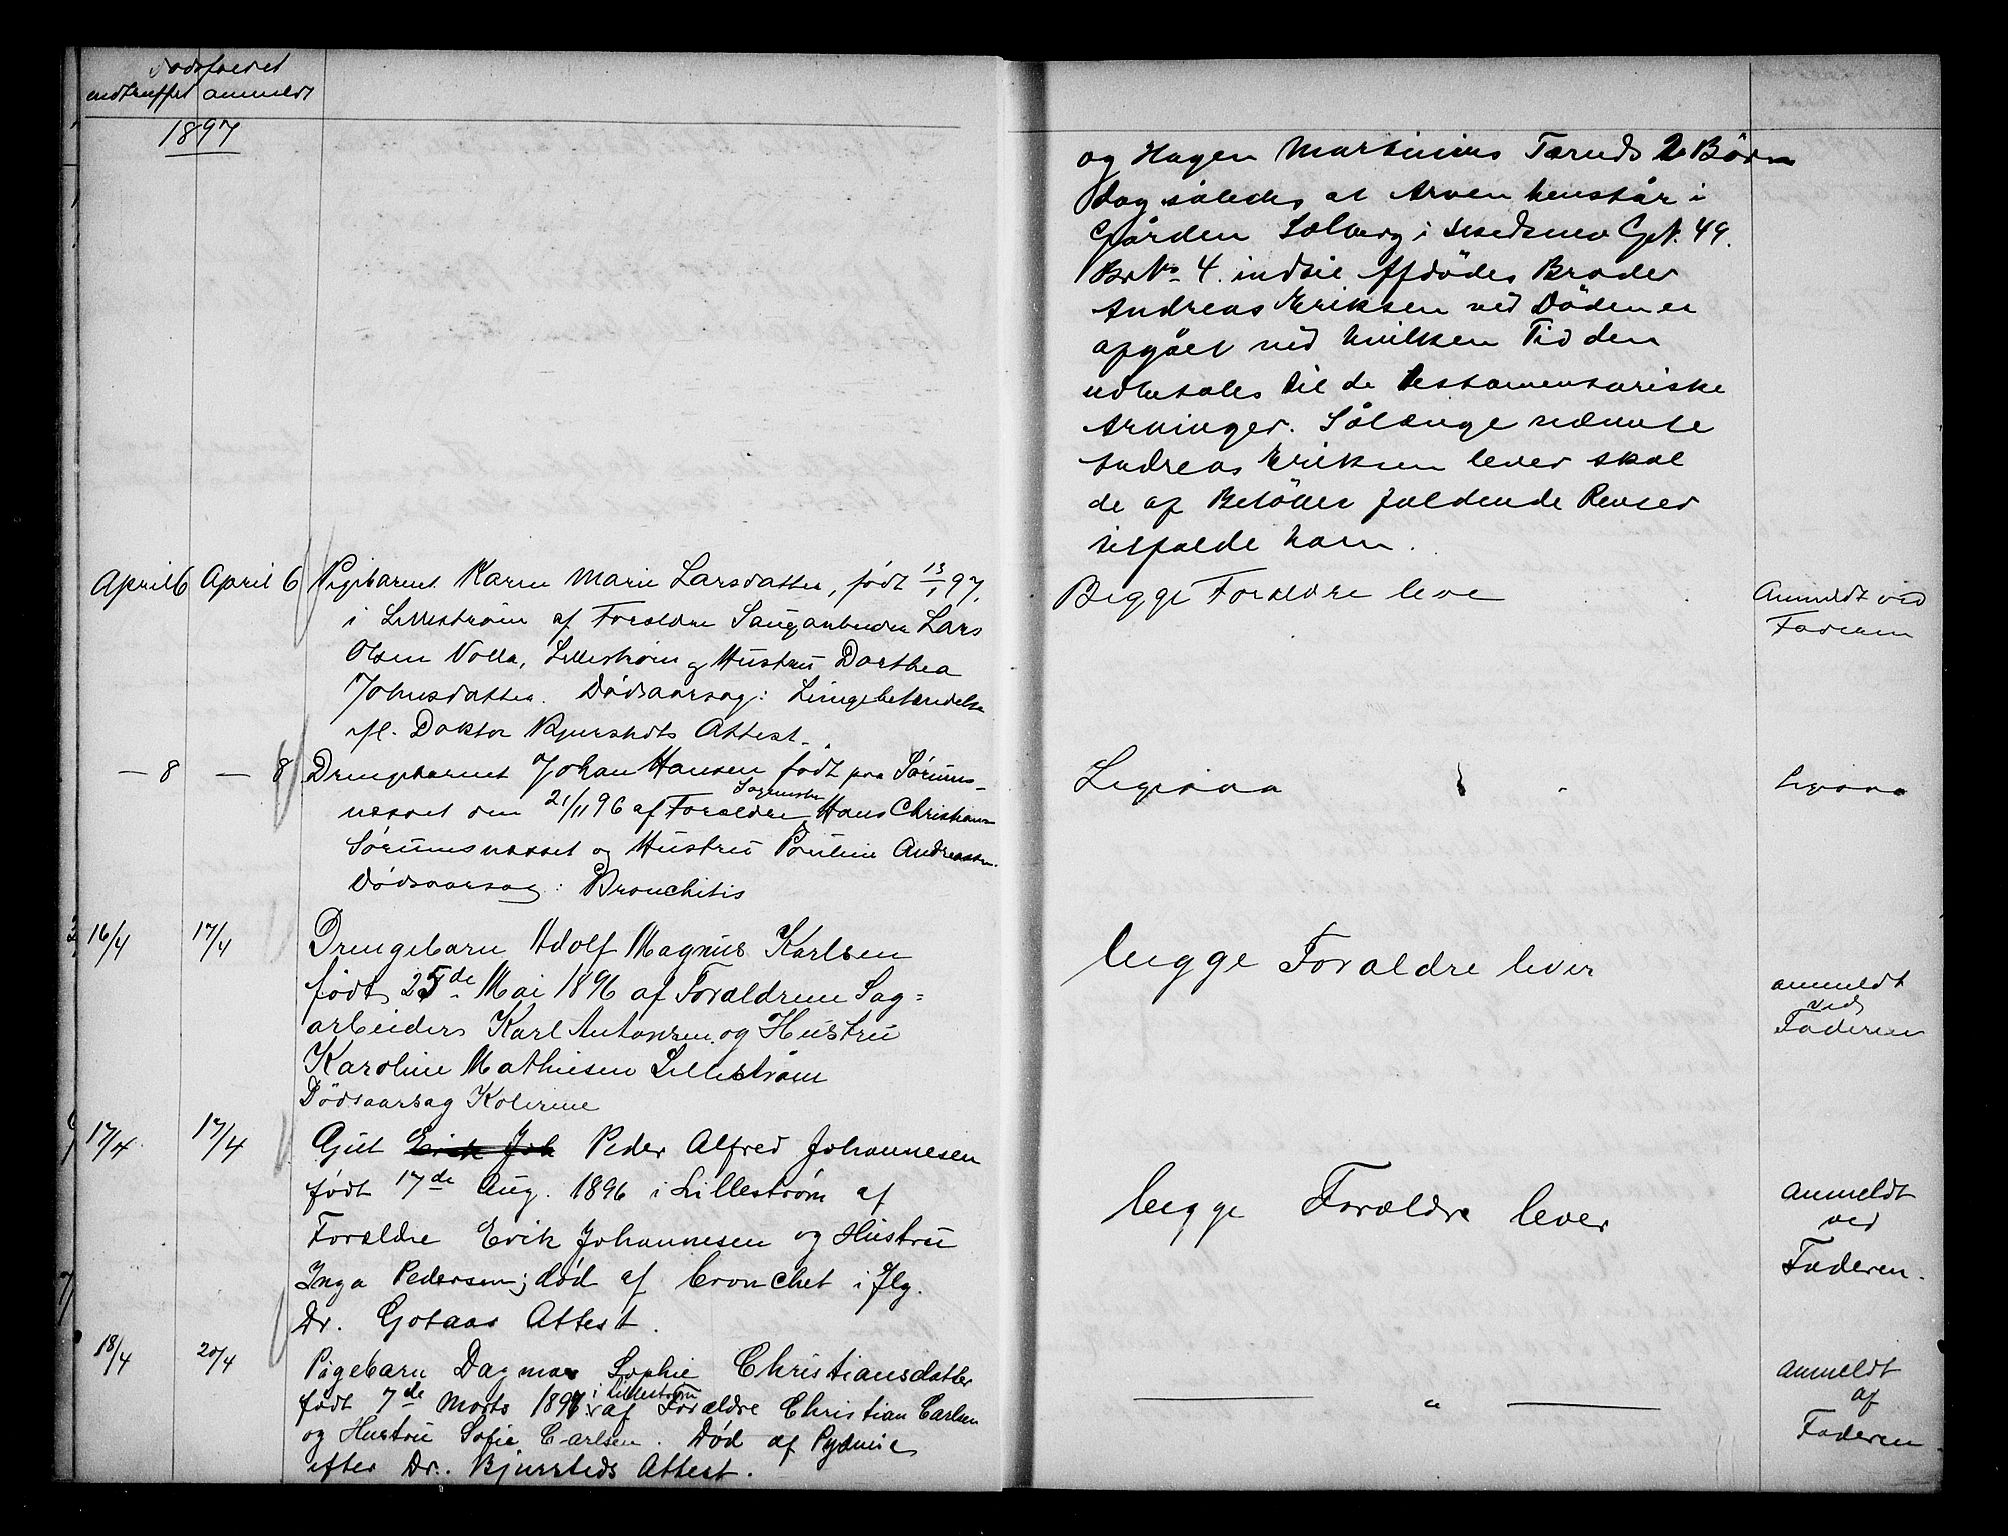 Dødsfaldet
indtruffet anmeldt
1897
og Hagen Martinius Taruds 2 Börn
dog således at Arven henstår i
Gården Solberg i Skedsmo Gr. 49.
BrNo 4. indtil Afdödes Broder
Andreas Eriksen ved Döden er
afgået ved hvilken Tid den
udbetales til de testamentariske
Arvinger. Sålænge nævnte
Andreas Eriksen lever skal
de af Belöbet faldende Renter
tilfalde ham.
April 6 April 6 Pigebarnet Karen Marie Larsdatter, født 13/1 97.
i Lillestrøm af Forældre Saugarbeider Lars
Olsen Volla, Lillestrøm og Hustru Dorthea
Johnsdatter. Dødsaarsag: Lungebetændelse
ifl. Doktor Bjurstedts Attest.
Begge Forældre leve
Anmeldt ved
Faderen
— 8 — 8 Drengebarnet Johan Hansen født paa Sørums-
næsset den 21/11 96 af Forældre Hans Christiansen
Sørumsnæsset og Hustru Pauline Andreassen.
Dødsaarsag: Bronchitis
Ligesaa
Ligesaa
16/4 17/4 Drengebarn Adolf Magnus Karlsen
født 25de Mai 1896 af Forældrene Sag=
arbeider Karl Antonsen og Hustru
Karoline Mathiesen Lillestrøm
Dödsaarsag Kolerine
begge Forældre lever
anmeldt
ved
Faderen
17/4 17/4 Gut Erik Joh Peder Alfred Johannesen
født 17de Aug. 1896 i Lillestrøm af
Forældre Erik Johannesen og Hustru
Inga Pedersen; död af bronchet i flg.
Dr. Gotaas Attest.
begge Forældre lever
Anmeldt
ved
Faderen.
18/4 20/4 Pigebarn Dagmar Sophie Christiansdatter
født 7de Marts 1897 i Lillestrøm af Forældre Christian Carlsen
og Hustru Sofie Carlsen. Död af Pydmie
efter Dr. Bjursteds Attest.
— " —
Anmeldt
af
Faderen